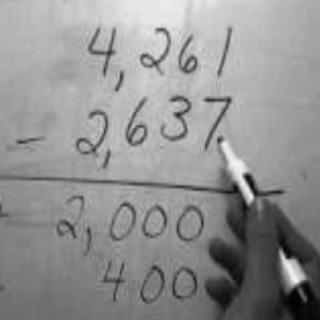 4,261
- 2,637
2,000
400